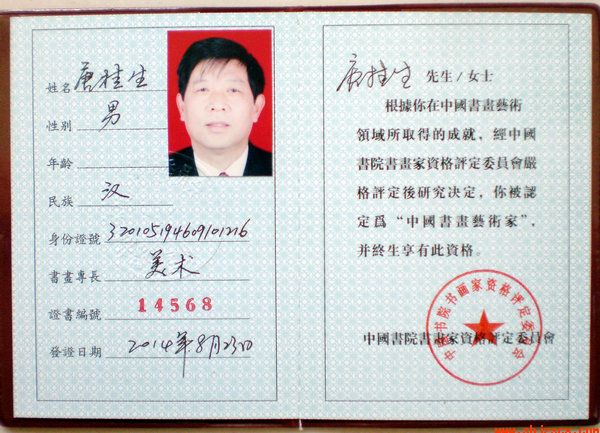 姓名 唐桂生
性别 男
年齡
民族 汉
身份證號 320105194609101216
書畫專長 美术
證書編號 14568
發證日期 2014年8月23日
唐桂生 先生/女士
根據你在中國書畫藝術
領域所取得的成就，經中國
書院書畫家資格評定委員會嚴
格評定後研究决定，你被認
定爲“中國書畫藝術家”，
并終生享有此資格。
中国书院书画家资格评定委员会
中國書院書畫家資格評定委員會